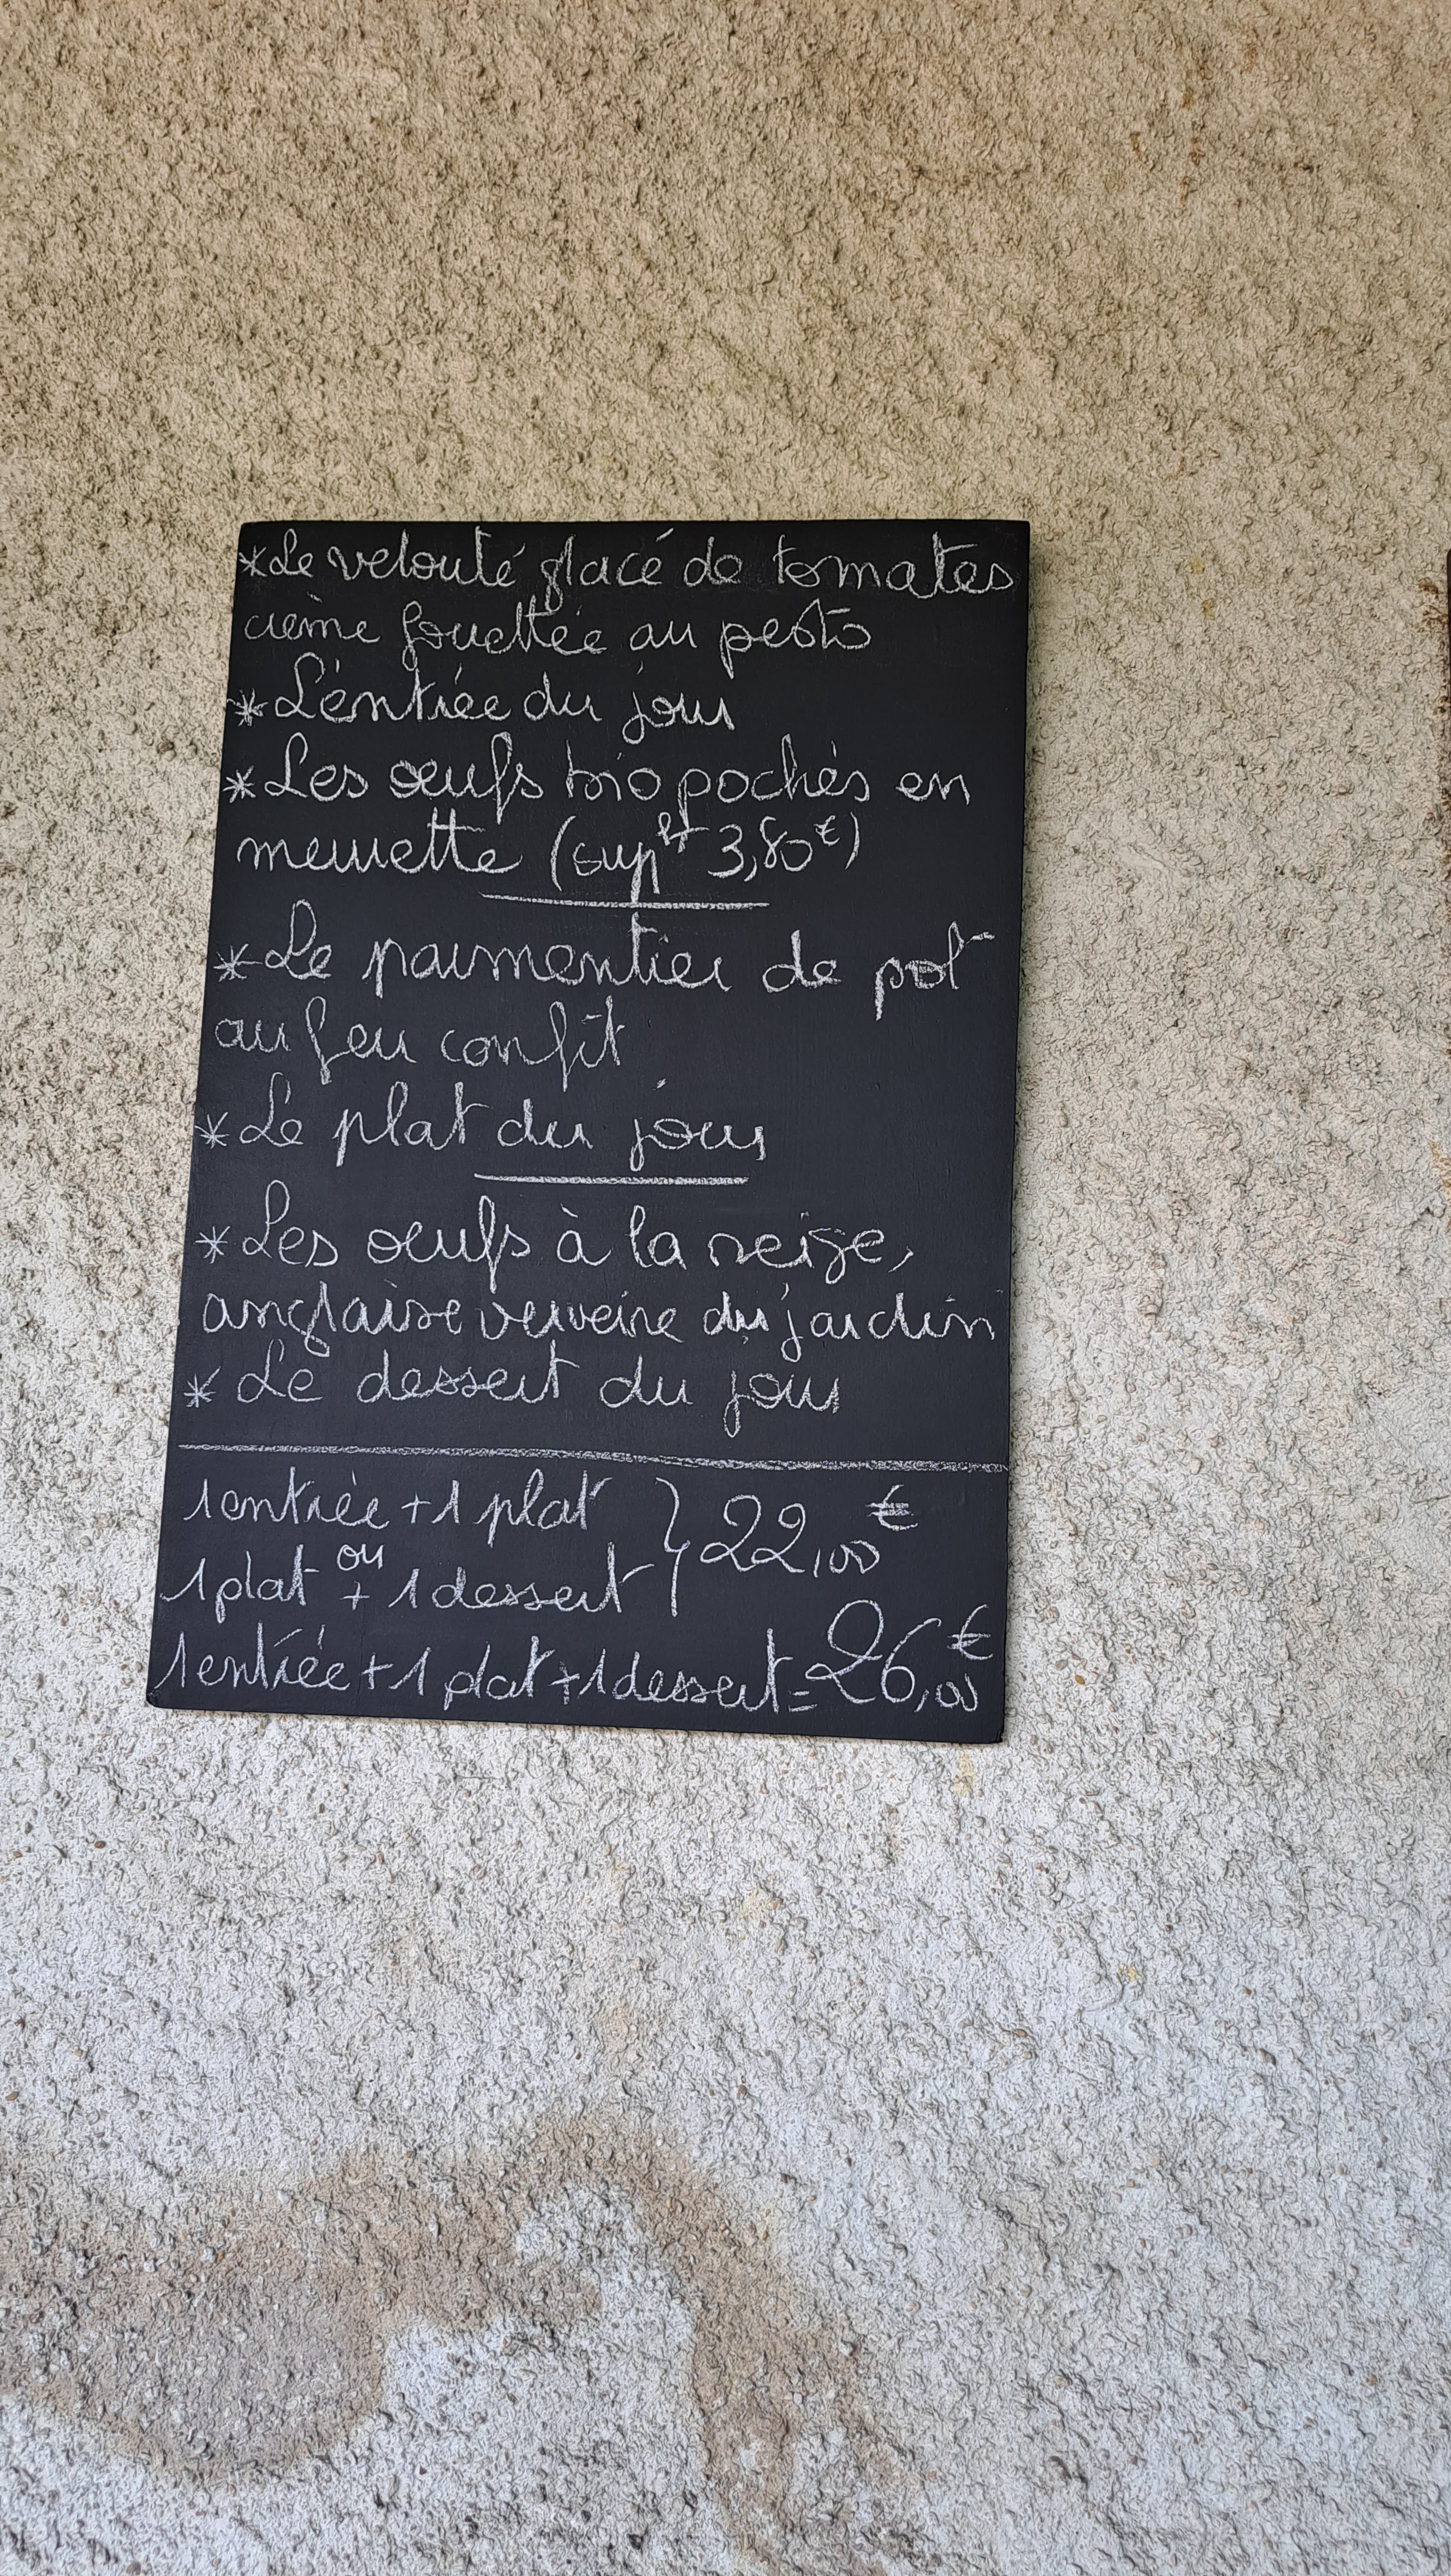 *Le velouté glacé de tomates
crème fouettée au pesto
*L'entrée du jour
*Les œufs bio pochés en
meurette (suppt 3,80€)
*Le parmentier de pot
au feu confit
*Le plat du jour
*Les œufs à la neige,
anglaise verveine du jardin
*Le dessert du jour
1 entrée + 1 plat
ou } 22,00€
1 plat + 1 dessert
1 entrée + 1 plat + 1 dessert = 26,00€